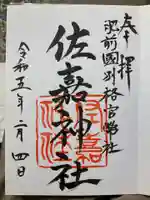 奉拝
肥前國別格官幣社
佐嘉神社
令和五年二月四日